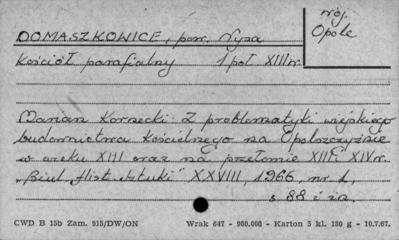 DOMASZKOWICE, pow. Nysa
woj. Opole
Kościół parafialny 1 poł XIII w.
Marian Kornecki Z problematyki wiejskiego
budownictwa kościelnego na Opolszczyźnie
w wieku XIII oraz na przełomie XIII i XIV w.
„Biul. Hist. Sztuki" XXVIII, 1966, nr 1,
s 88 i n.
CWD B 15b Zam. 915/DW/ON Wrak 647 - 980.000 - Karton 3 kl. 180 g - 10.7.67.